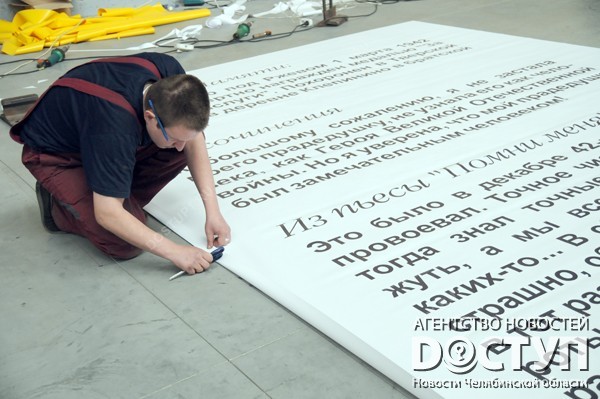 памяти
под Ржевом 1 марта 1942
деревне
сочинения
большому сожалению, я не застала
его прадедушку, не узнала его как чело-
века, как Героя Великой Отечественной
войны. Но я уверена, что мой прадедушка
был замечательным человеком!
Из пьесы "Помни меня
Это было в декабре 42-
провоевал. Точное чис
тогда знал точные
жуть, а мы все
каких-то... В о
страшно, о
в тот раз
АГЕНТСТВО НОВОСТЕЙ
ДОСТУП
Новости Челябинской области